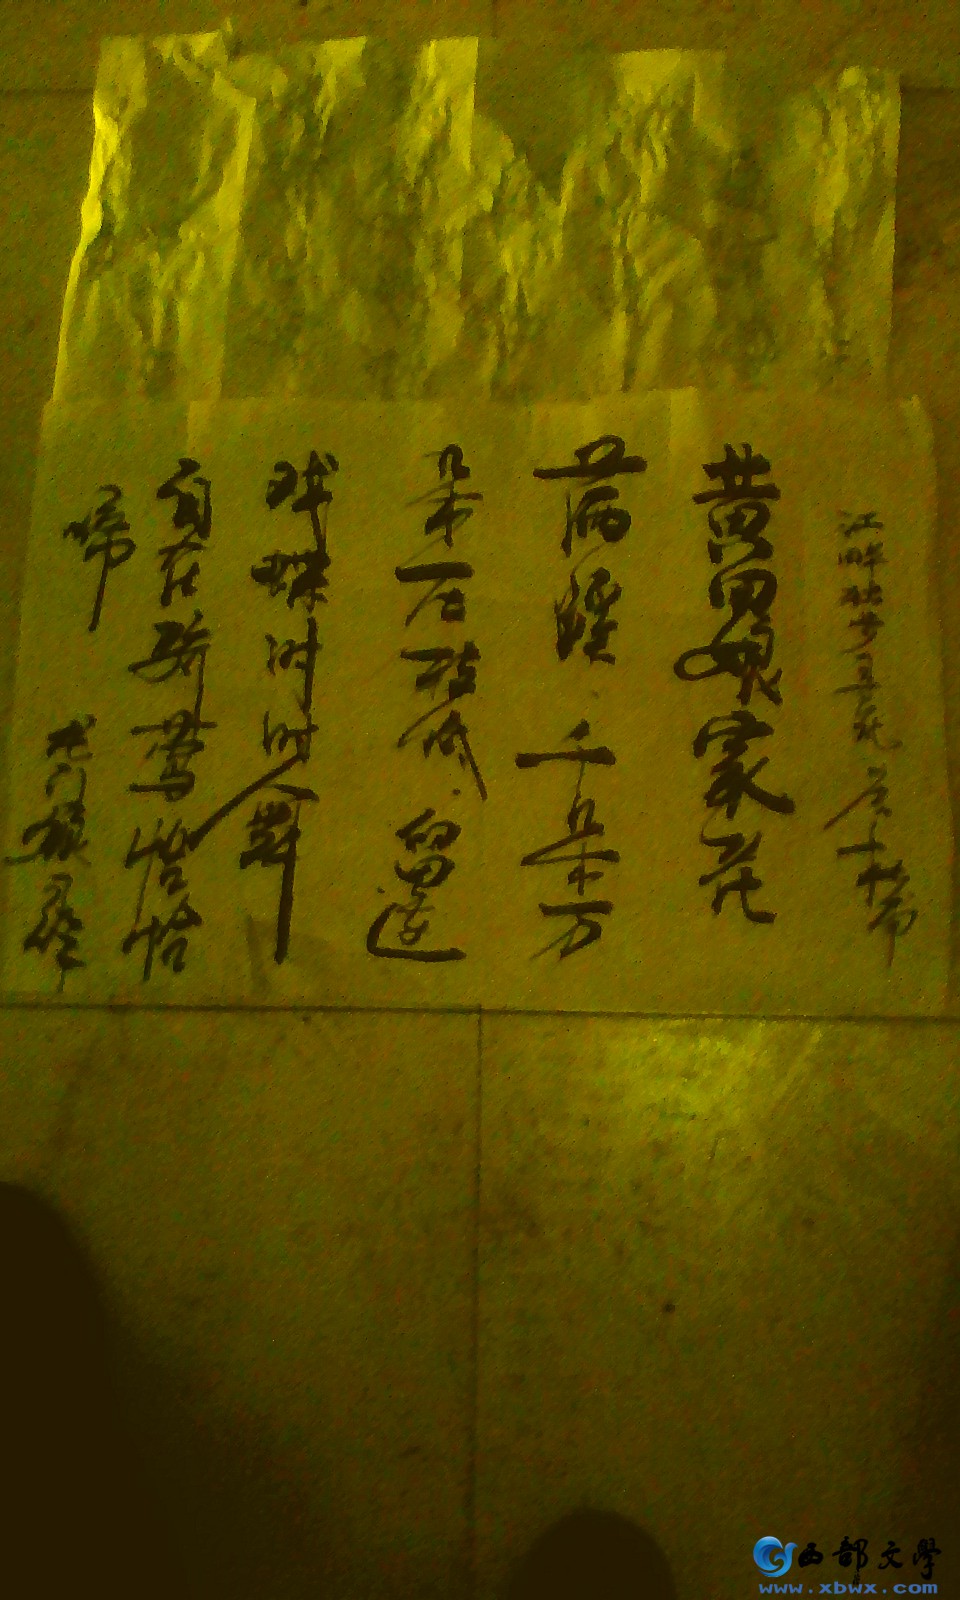 江畔独步寻花 唐 杜甫
黄四娘家花
满蹊、千朵万
朵压枝低.留连
戏蝶时时舞
自在娇莺恰恰
啼
龙门
西部文學
www.xbwx.com